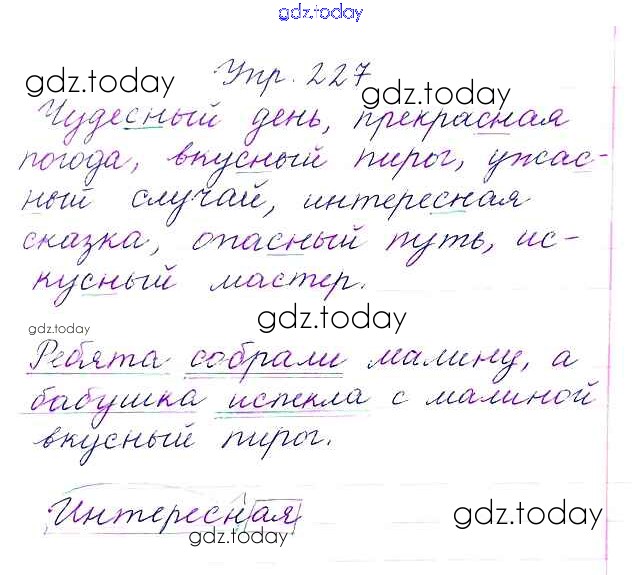 gdz.today
Упр. 227
gdz.today
gdz.today
Чудесный день, прекрасная
погода, вкусный пирог, ужас-
ный случай, интересная
сказка, опасный путь, ис-
кусный мастер.
gdz.today
gdz.today
Ребята собрали малину, а
бабушка испекла с малиной
вкусный пирог.
Интересная
gdz.today
gdz.today